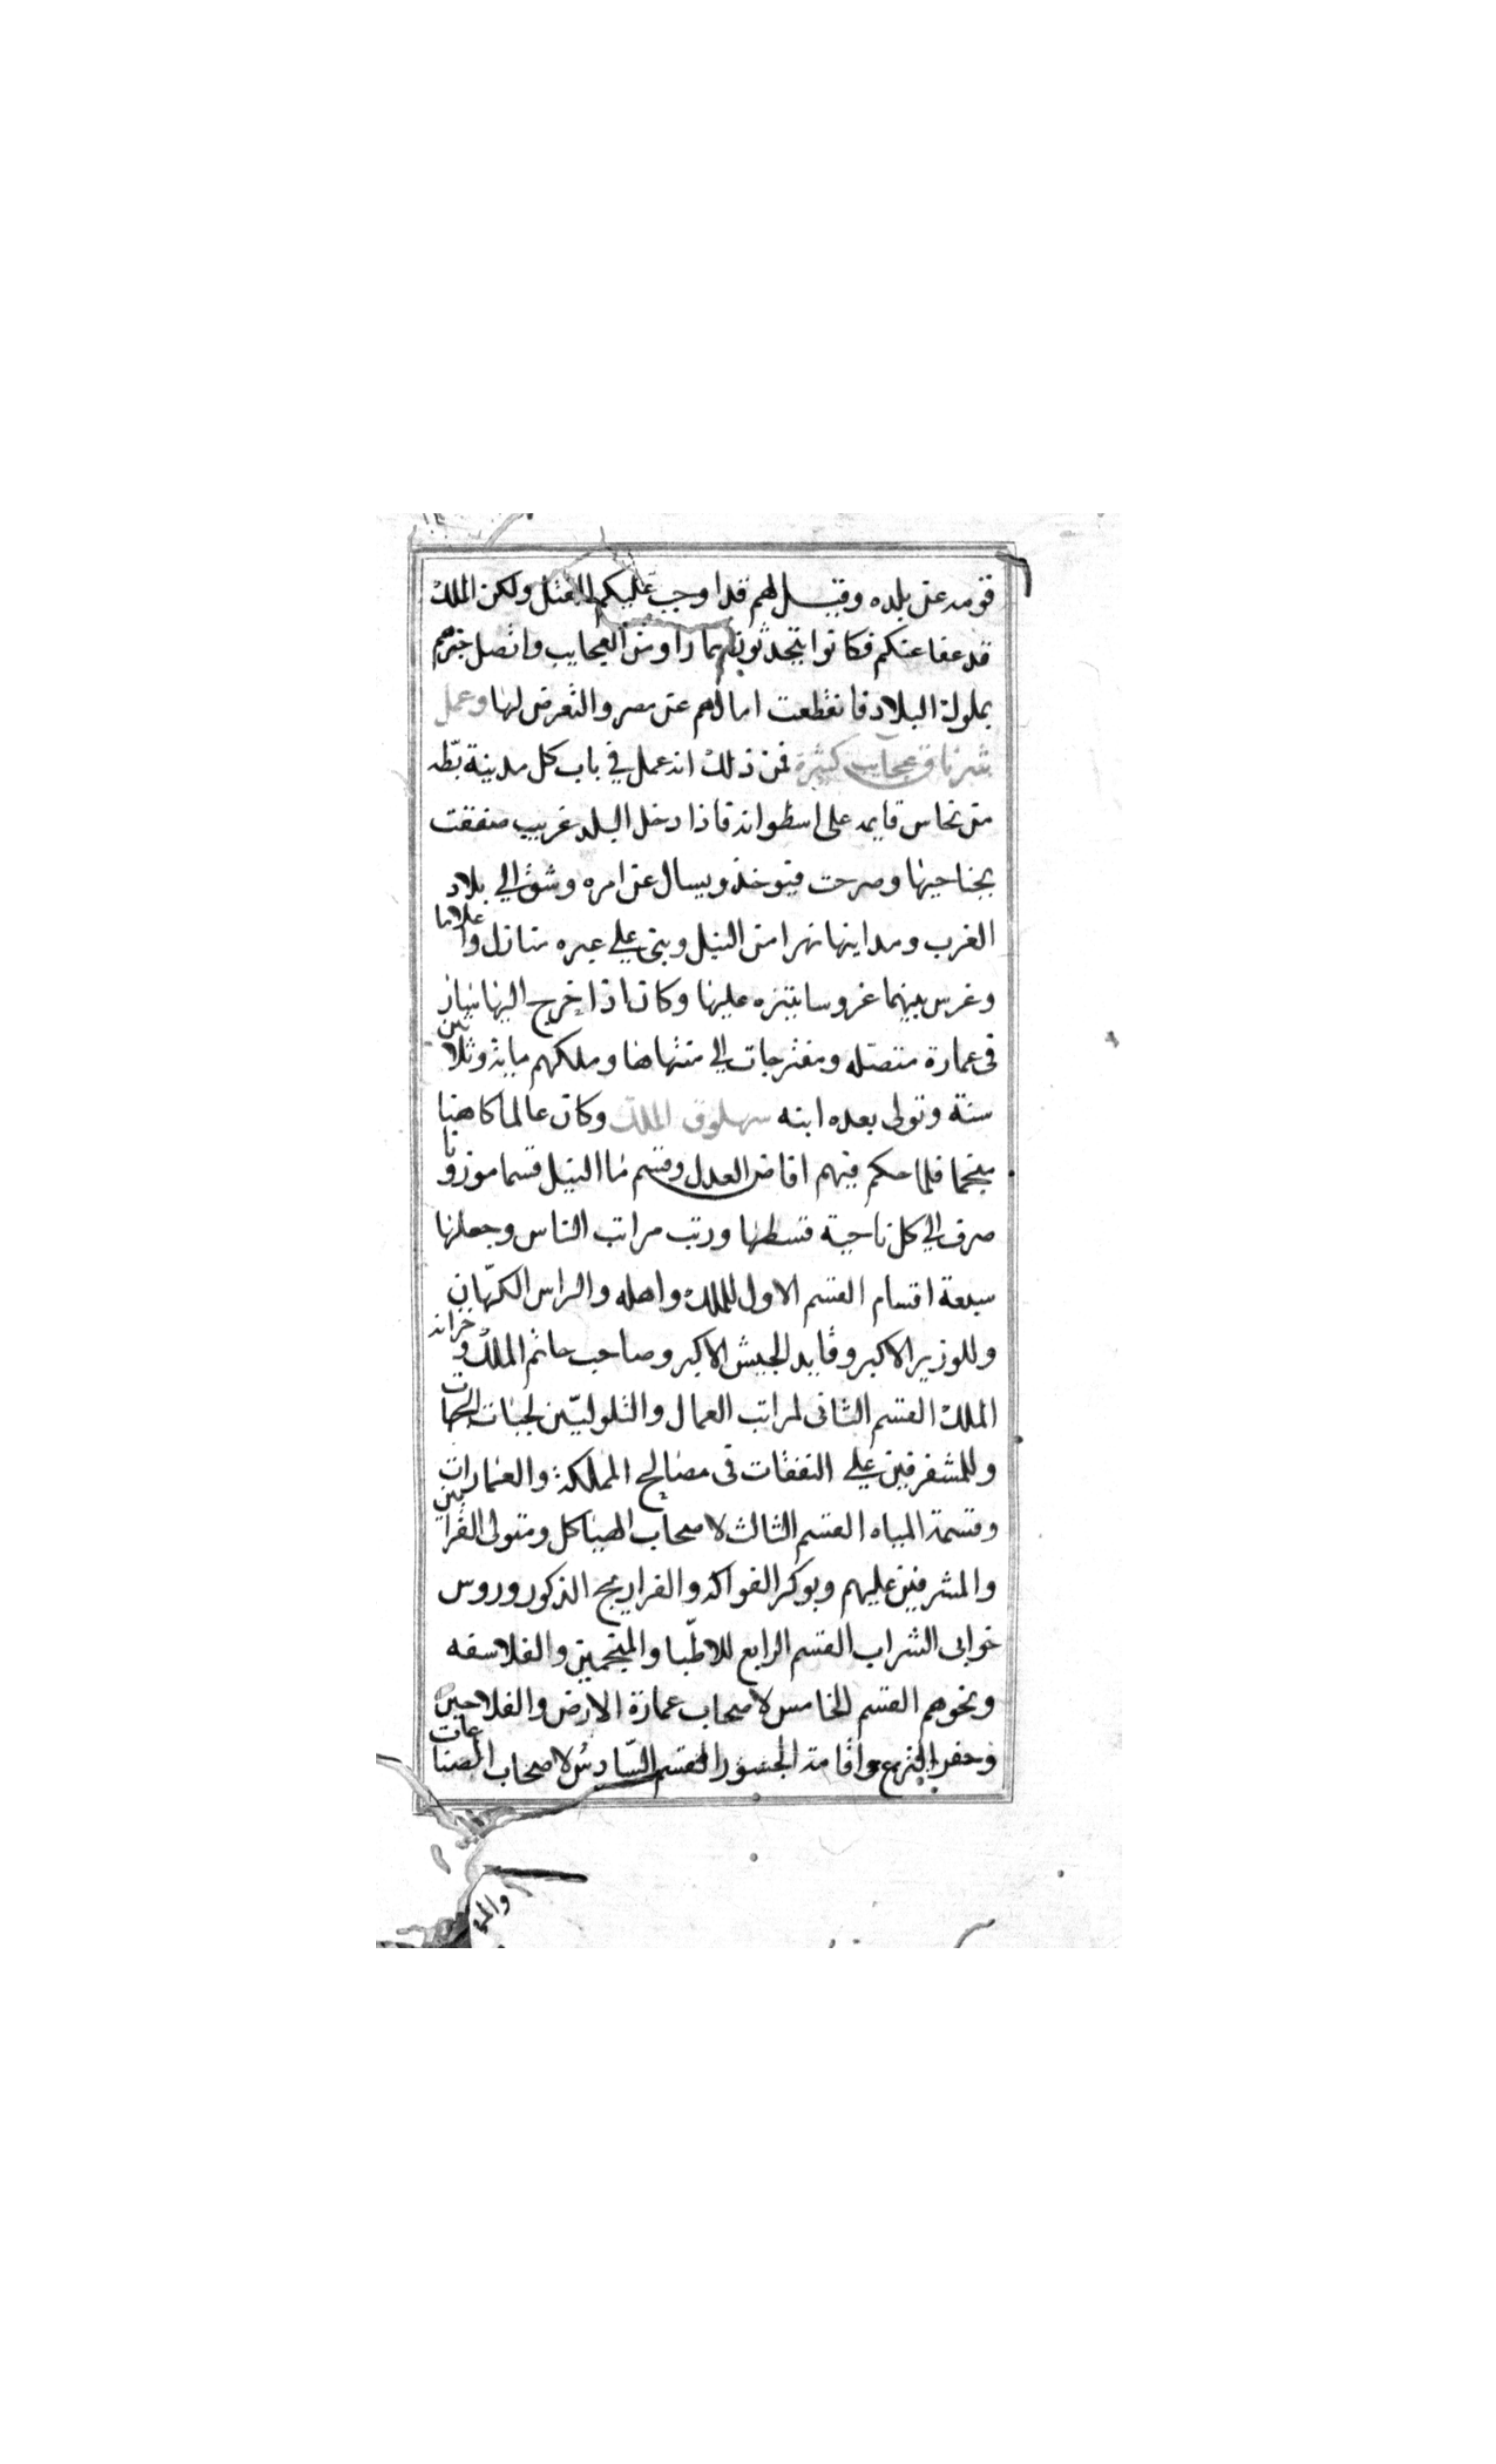 قومه عن بلده وقيل لهم قد اوجب عليكم القتل ولكن الملك
قد عفا عنكم فكانوا يتحدثون بما راو من العجايب واتصل خبرهم
بملوك البلاد فانقطعت امالهم عن مصر والتعرض لها وعمل
شرناق عجايب كثيرة فمن ذلك انه عمل في باب كل مدينة بطه
من نحاس قايمه على اسطوانه فاذا دخل البلد غريب صفقت
بجناحيها وصرخت فيوخذ ويسال عن امره وشق الي بلاد
الغرب ومداينها نهرا من النيل وبنى علي عبره منازل واعلاما
وغرس بينهما غروسا يتنزه عليها وكان اذا خرج اليها سار
في عمارة متصله ومتفرجات الي منتهاها وملكهم ماية وثلاثين
سنة وتولى بعده ابنه سهلوق الملك وكان عالما كاهنا
منجما فلما حكم فيهم افاض العدل وقسم ما النيل قسما موزونا
صرف الي كل ناحية قسطها ورتب مراتب الناس وجعلها
سبعة اقسام القسم الاول للملك واهله والراس الكهان
وللوزير الاكبر وقايد الجيش الاكبر وصاحب خاتم الملك وخزانه
الملك القسم الثاني لمراتب العمال والتلوليين لجبات
وللمشفرفين علي النفقات في مصالح المملكة والعمارات
وقسمة المياه القسم الثالث لاصحاب الهياكل ومتولى القرابين
والمشرفين عليهم وبوكر الفواكه والفراريج الذكور وروس
خوابى الشراب القسم الرابع للاطبا والمنجمين والفلاسفه
ونحوهم القسم الخامس لاصحاب عمارة الارض والفلاحين
وحفر الترع واقامة الجسور القسم السادس لاصحاب الصناعات